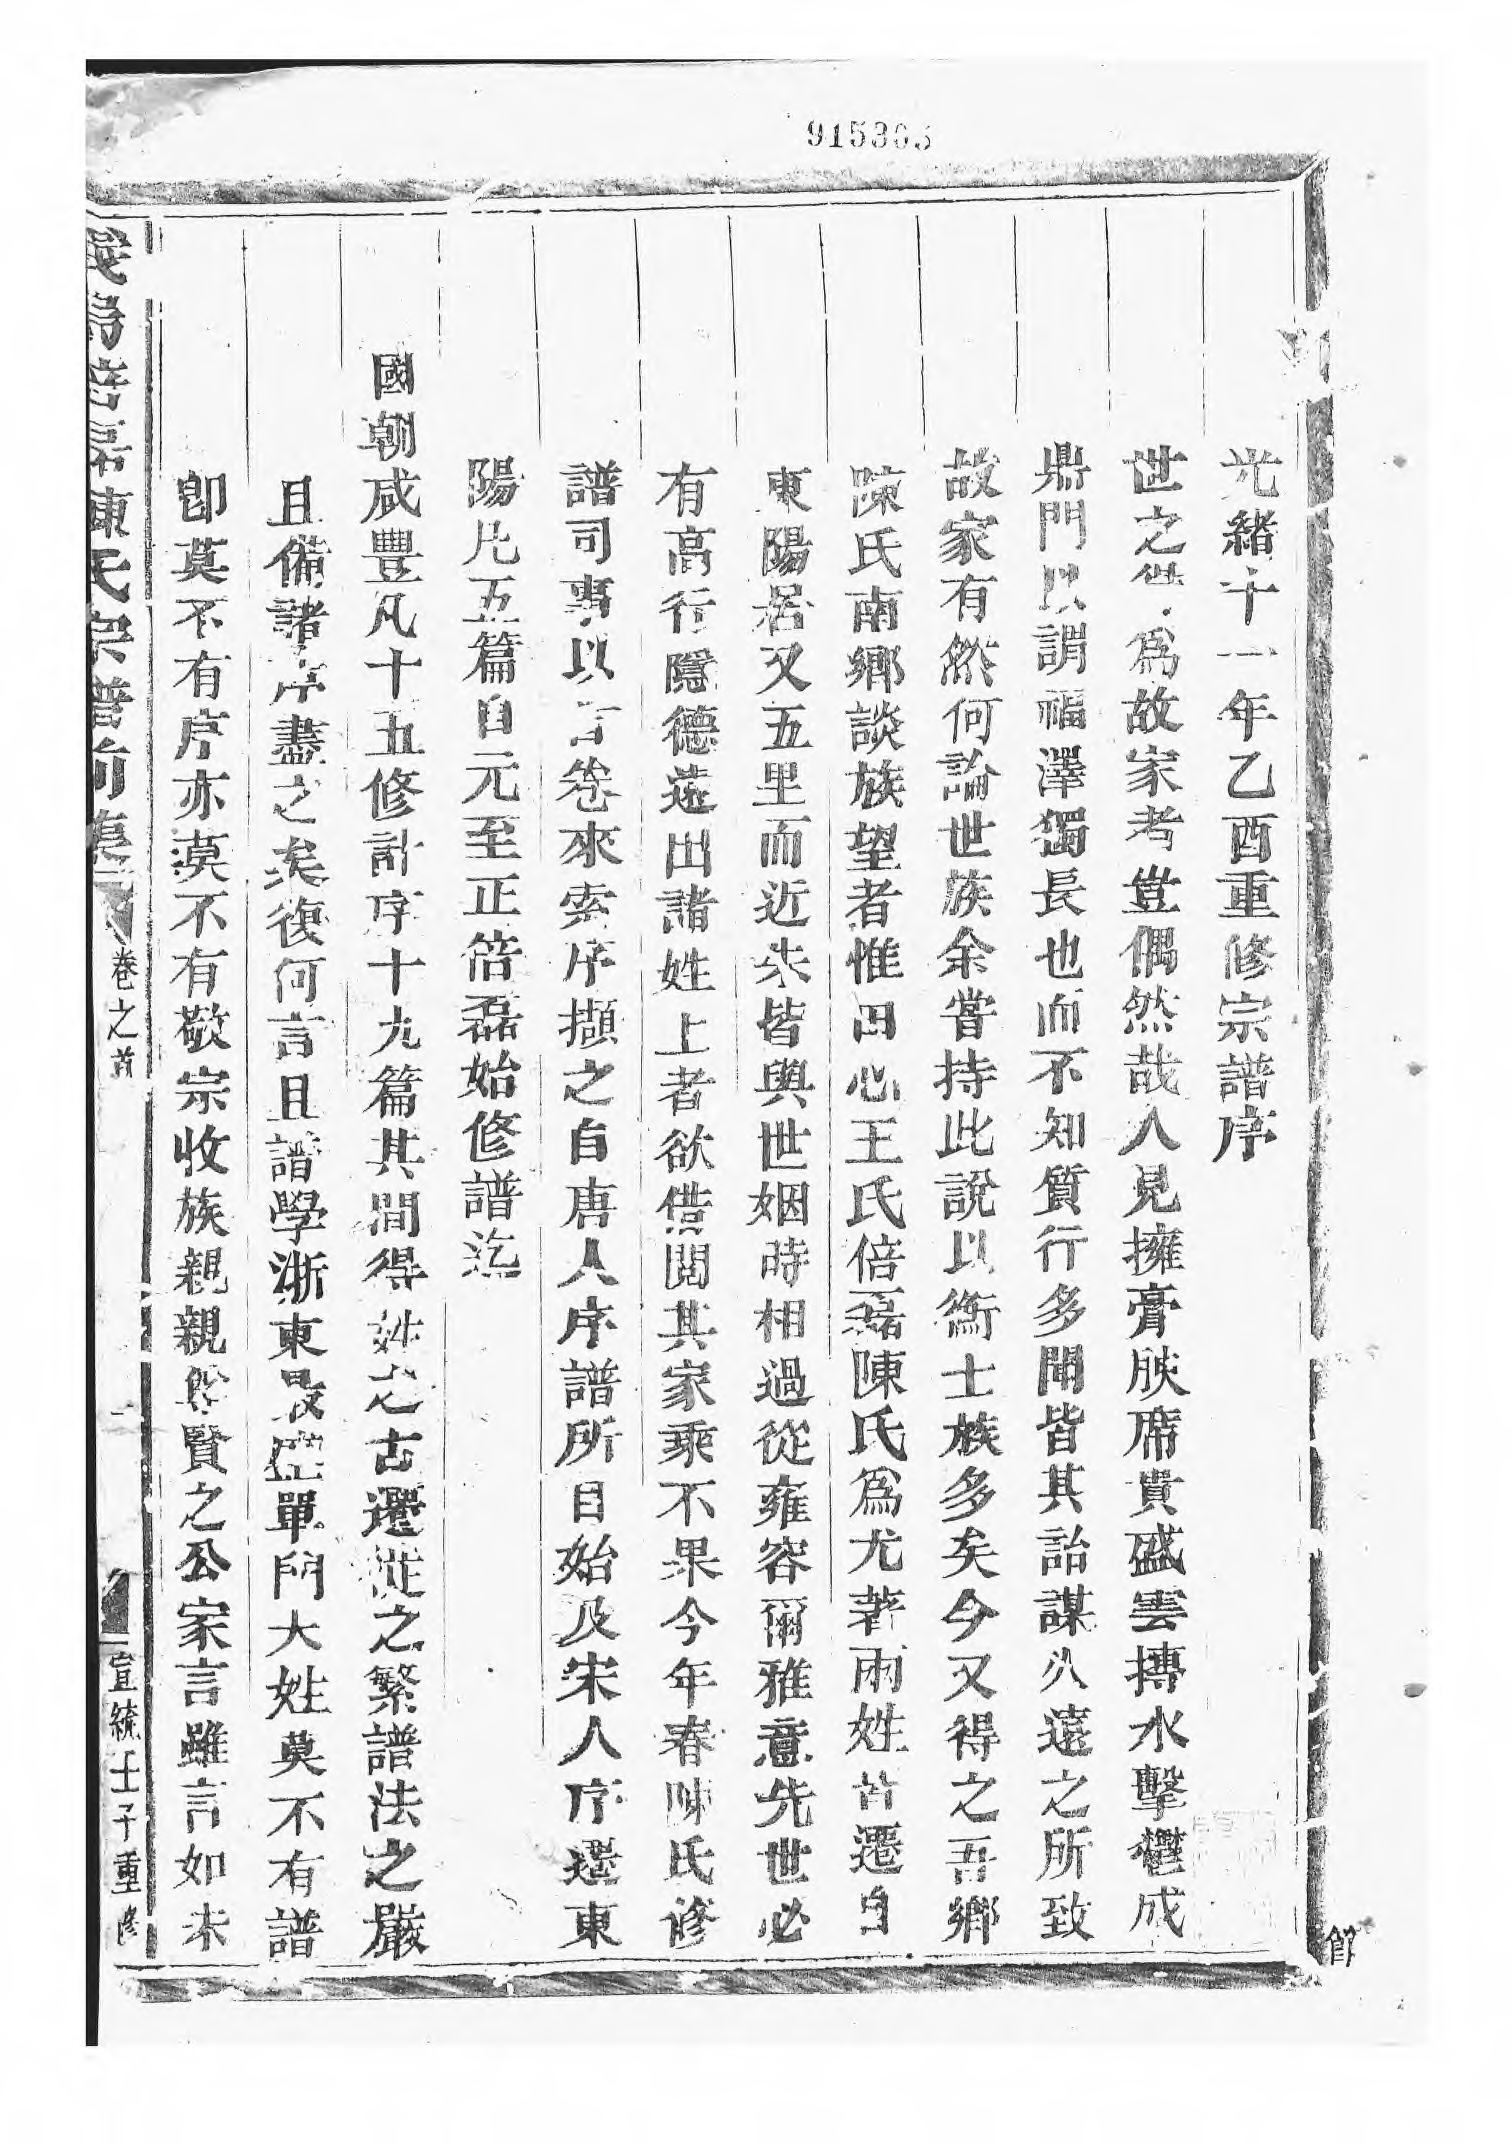 915303
光緒十一年乙酉重修宗譜序
世之 爲故家考豈偶然哉人見擁膏腴席貴盛雲摶水擊鬱成
鼎門以謂福澤獨長也而不知質行多聞皆其詒謀久遠之所致
故家有然何論世族余嘗持此說以衡士族多矣今又得之吾鄉
陳氏南鄉談族望者惟田心王氏倍磊陳氏爲尤著兩姓皆遷自
東陽居又五里而近朱皆與世姻時相過從雍容爾雅意先世必
有高行隱德遠出諸姓上者欲借閱其家乘不果今年春陳氏修
譜司事以 言卷來索序擷之自唐人序譜所自始及宋人序遷東
陽凡五篇自元至正倍磊始修譜迄
國朝咸豐凡十五修計序十九篇其間得姓之古遷徙之繁譜法之嚴
且備諸序盡之矣復何言且譜學浙東最盛單門大姓莫不有譜
卽莫不有序亦莫不有敬宗收族親親 賢之公家言雖言如未
義烏倍磊陳氏宗譜前集
卷之首
一
宣統壬子重修
館